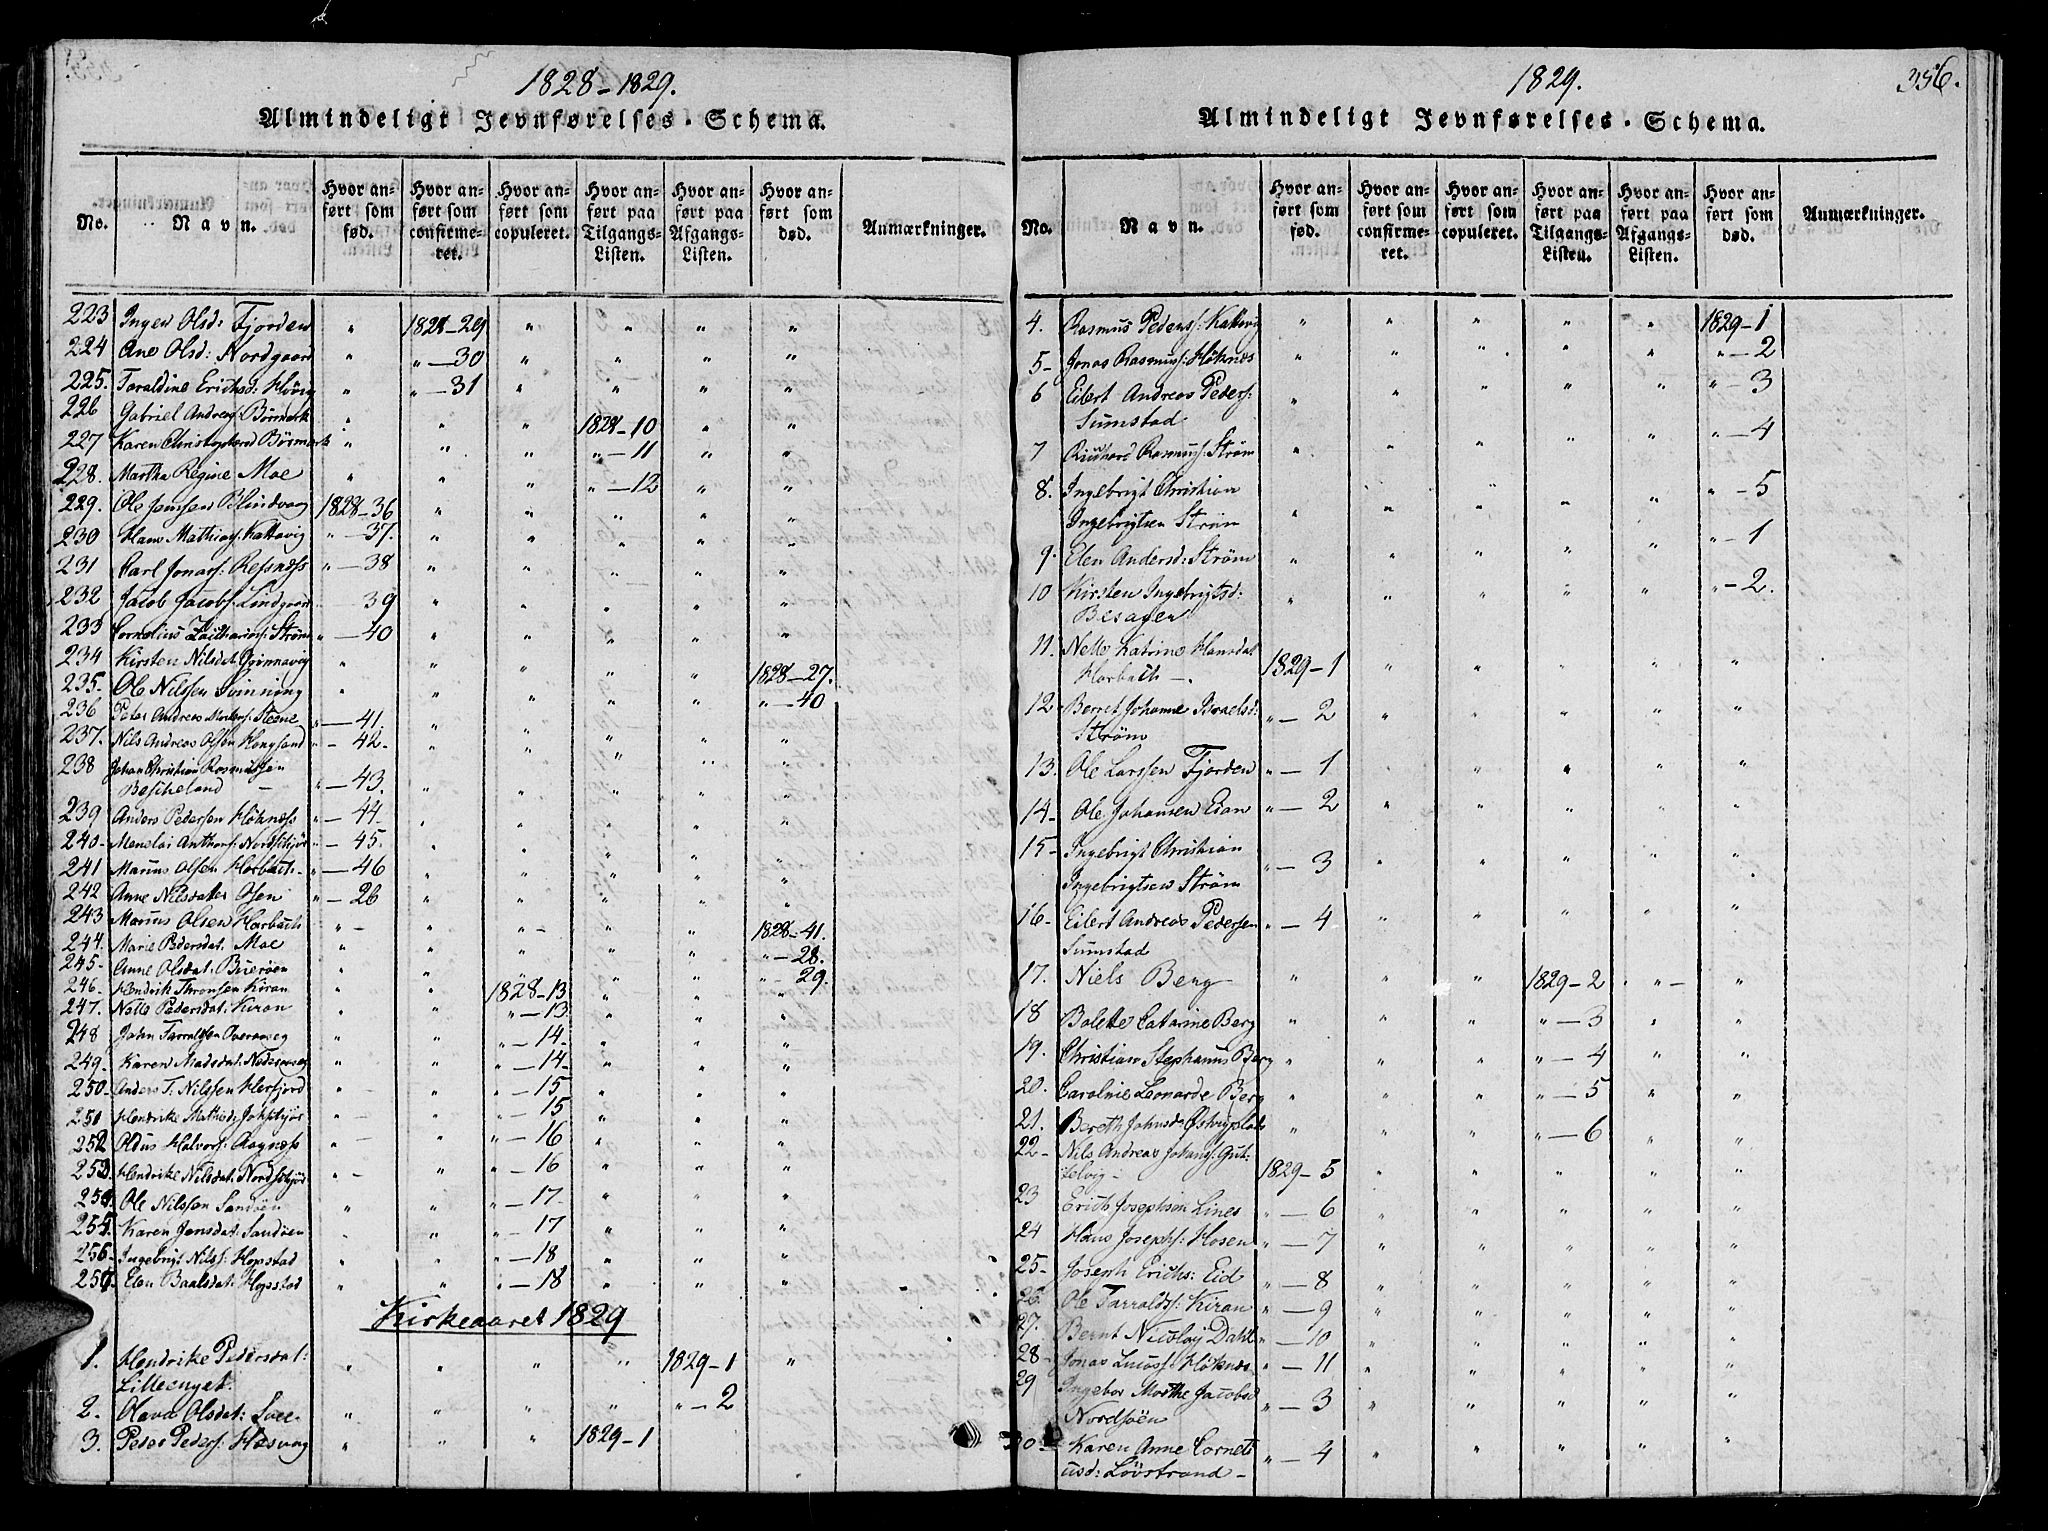 1828-1829.
Almindeligt Jevnførelses-Schema.
No. Navn. Hvor anført som fød. Hvor anført som confirmeret. Hvor anført som copuleret. Hvor anført paa Tilgangs-Listen. Hvor anført paa Afgangs-Listen. Hvor anført som død. Anmærkninger.
223 Inger Olsd: Fjorden " 1828-29 " " " "
224 Ane Olsd: Nordgaard " "-30 " " " "
225. Taraldine Erichsd: " "-31 " " " "
226 Gabriel Andreas: Börmark " " " 1828-10 " "
227 Karen Christophersd Börmark " " " "-11 " "
228. Martha Regine Moe " " " "-12 " "
229. Ole Jensen Blindvag 1828-36 " " " " "
230 Hans Mathias: Kattevig "-37. " " " " "
231 Carl Jonas: Refsnæss "-38 " " " " "
232 Jacob Jacobs: Lindgaard 39 " " " " "
233 Cornelius Zacharias: Strøm "-40 " " " " "
234 Kirsten Nilsdat: " " " " " 1828-27.
235. Ole Nilssen Svinning " " " " " "-40
236 Peter Andreas Steene "-41. " " " " "
237. Nils Andreas Olsen Hongsand "-42- " " " " "
238 Johan Christian Rasmussen
Bescheland - "-43. " " " " "
239 Anders Pedersen Höknæss "-44- " " " " "
240- Menelai Anthons: Nordskjör "-45. " " " " "
241 Marius Olsen Harbach- "-46 " " " " "
242- Anne Nilsdatter Osen "-26 " " " " "
243 Marius Olsen Harbach " " " " " 1828-41.
244. Marie Pedersdat: Moe " " " " " "-28.
245- Anne Olsdat: Bueröen " " " " " "-29.
246- Hendrik Thronsen Kiran " " 1828-13 " " "
247. Nelle Pedersdat: Kiran " " "-13 " " "
248 John Tarraldsen " " "-14- " " "
249. Karen Madsdat: " " "-14- " " "
250- Anders T: Nilssen Herfjord " " "-15 " " "
251 Hendrike " " "-15 " " "
252 Oldus Halvors: Aagnæss " " "-16 " " "
253 Hendrike Nilsdat: Nordskjör " " "-16 " " "
254. Ole Nilssen Sandöen " " "-17- " " "
255. Karen Jensdat: Sandöen " " "-17 " " "
256- Ingebrigt Nilss: Hopstad " " "-18 " " "
257. Elen Baalsdat: Hopsstad " " "-18 " " "
Kirkeaaret 1829
1. Hendrike Pedersdat:
Lilleenget. " " " " 1829-1 "
2. Olava Olsdat: " " " " "-2
3. Peder Peders: Hasvag " " " 1829-1
1829.
356.
Almindeligt Jevnførelses-Schema.
No. Navn. Hvor anført som fød. Hvor anført som confirmeret. Hvor anført som copuleret. Hvor anført paa Tilgangs-Listen. Hvor anført paa Afgangs-Listen. Hvor anført som død. Anmærkninger.
4. Rasmus Peders: Kattevig " " " " " 1829-1
5- Jonas Rasmuss: Höknæs " " " " " "-2
6 Eilert Andreas Peders: " " " " " "-3
Sumstad
7 Richard Rasmuss: Strøm " " " " " "-4
8. Ingebrigt Christian
Ingebrigtsen Strøm " " " " " "-5
9. Elen Andersd: Strøm " " " " " "-1
10 Kirsten Ingebrigtsd:
Besager " " " " " "-2.
11. Nelle Katrine Hansdat
Harbach -. 1829-1 " " " " "
12 Berret Johanne Israelsd: "-2 " " " " "
Strøm
13. Ole Larssen Fjorden "-1 " " " " "
14- Ole Johansen Eian "-2 " " " " "
15- Ingebrigt Christian
Ingebrigtsen Strøm "-3 " " " " "
16- Eilert Andreas Pedersen "-4 " " " " "
Sumstad
17. Niels Berg " " " 1829-2 " "
18 Bolette Catarine Berg " " " "-3 " "
19. Christian Stephanus Berg " " " "-4 " "
20. Caroline Leonarde Berg " " " "-5 " "
21. Bereth Johnsd: " " " "-6 " "
22- Nils Andreas Johans: Gut-
telvig- 1829-5 " " " " "
23 Erich Josephsen Lines "-6 " " " " "
24 Hans Josephs: Hosen "-7 " " " " "
25- Joseph Erichs: Eid "-8 " " " " "
26. Ole Tarralds: Kiran "-9 " " " " "
27. Bernt Nicolaj Dahl "-10 " " " " "
28- Jonas Höknes "-11 " " " " "
29 Ingebor Marthe Jacobsd
Nordsöen "-3 " " " " "
30- Karen Anne Corneli
usd: Lövstrand- "-4 " " " " "